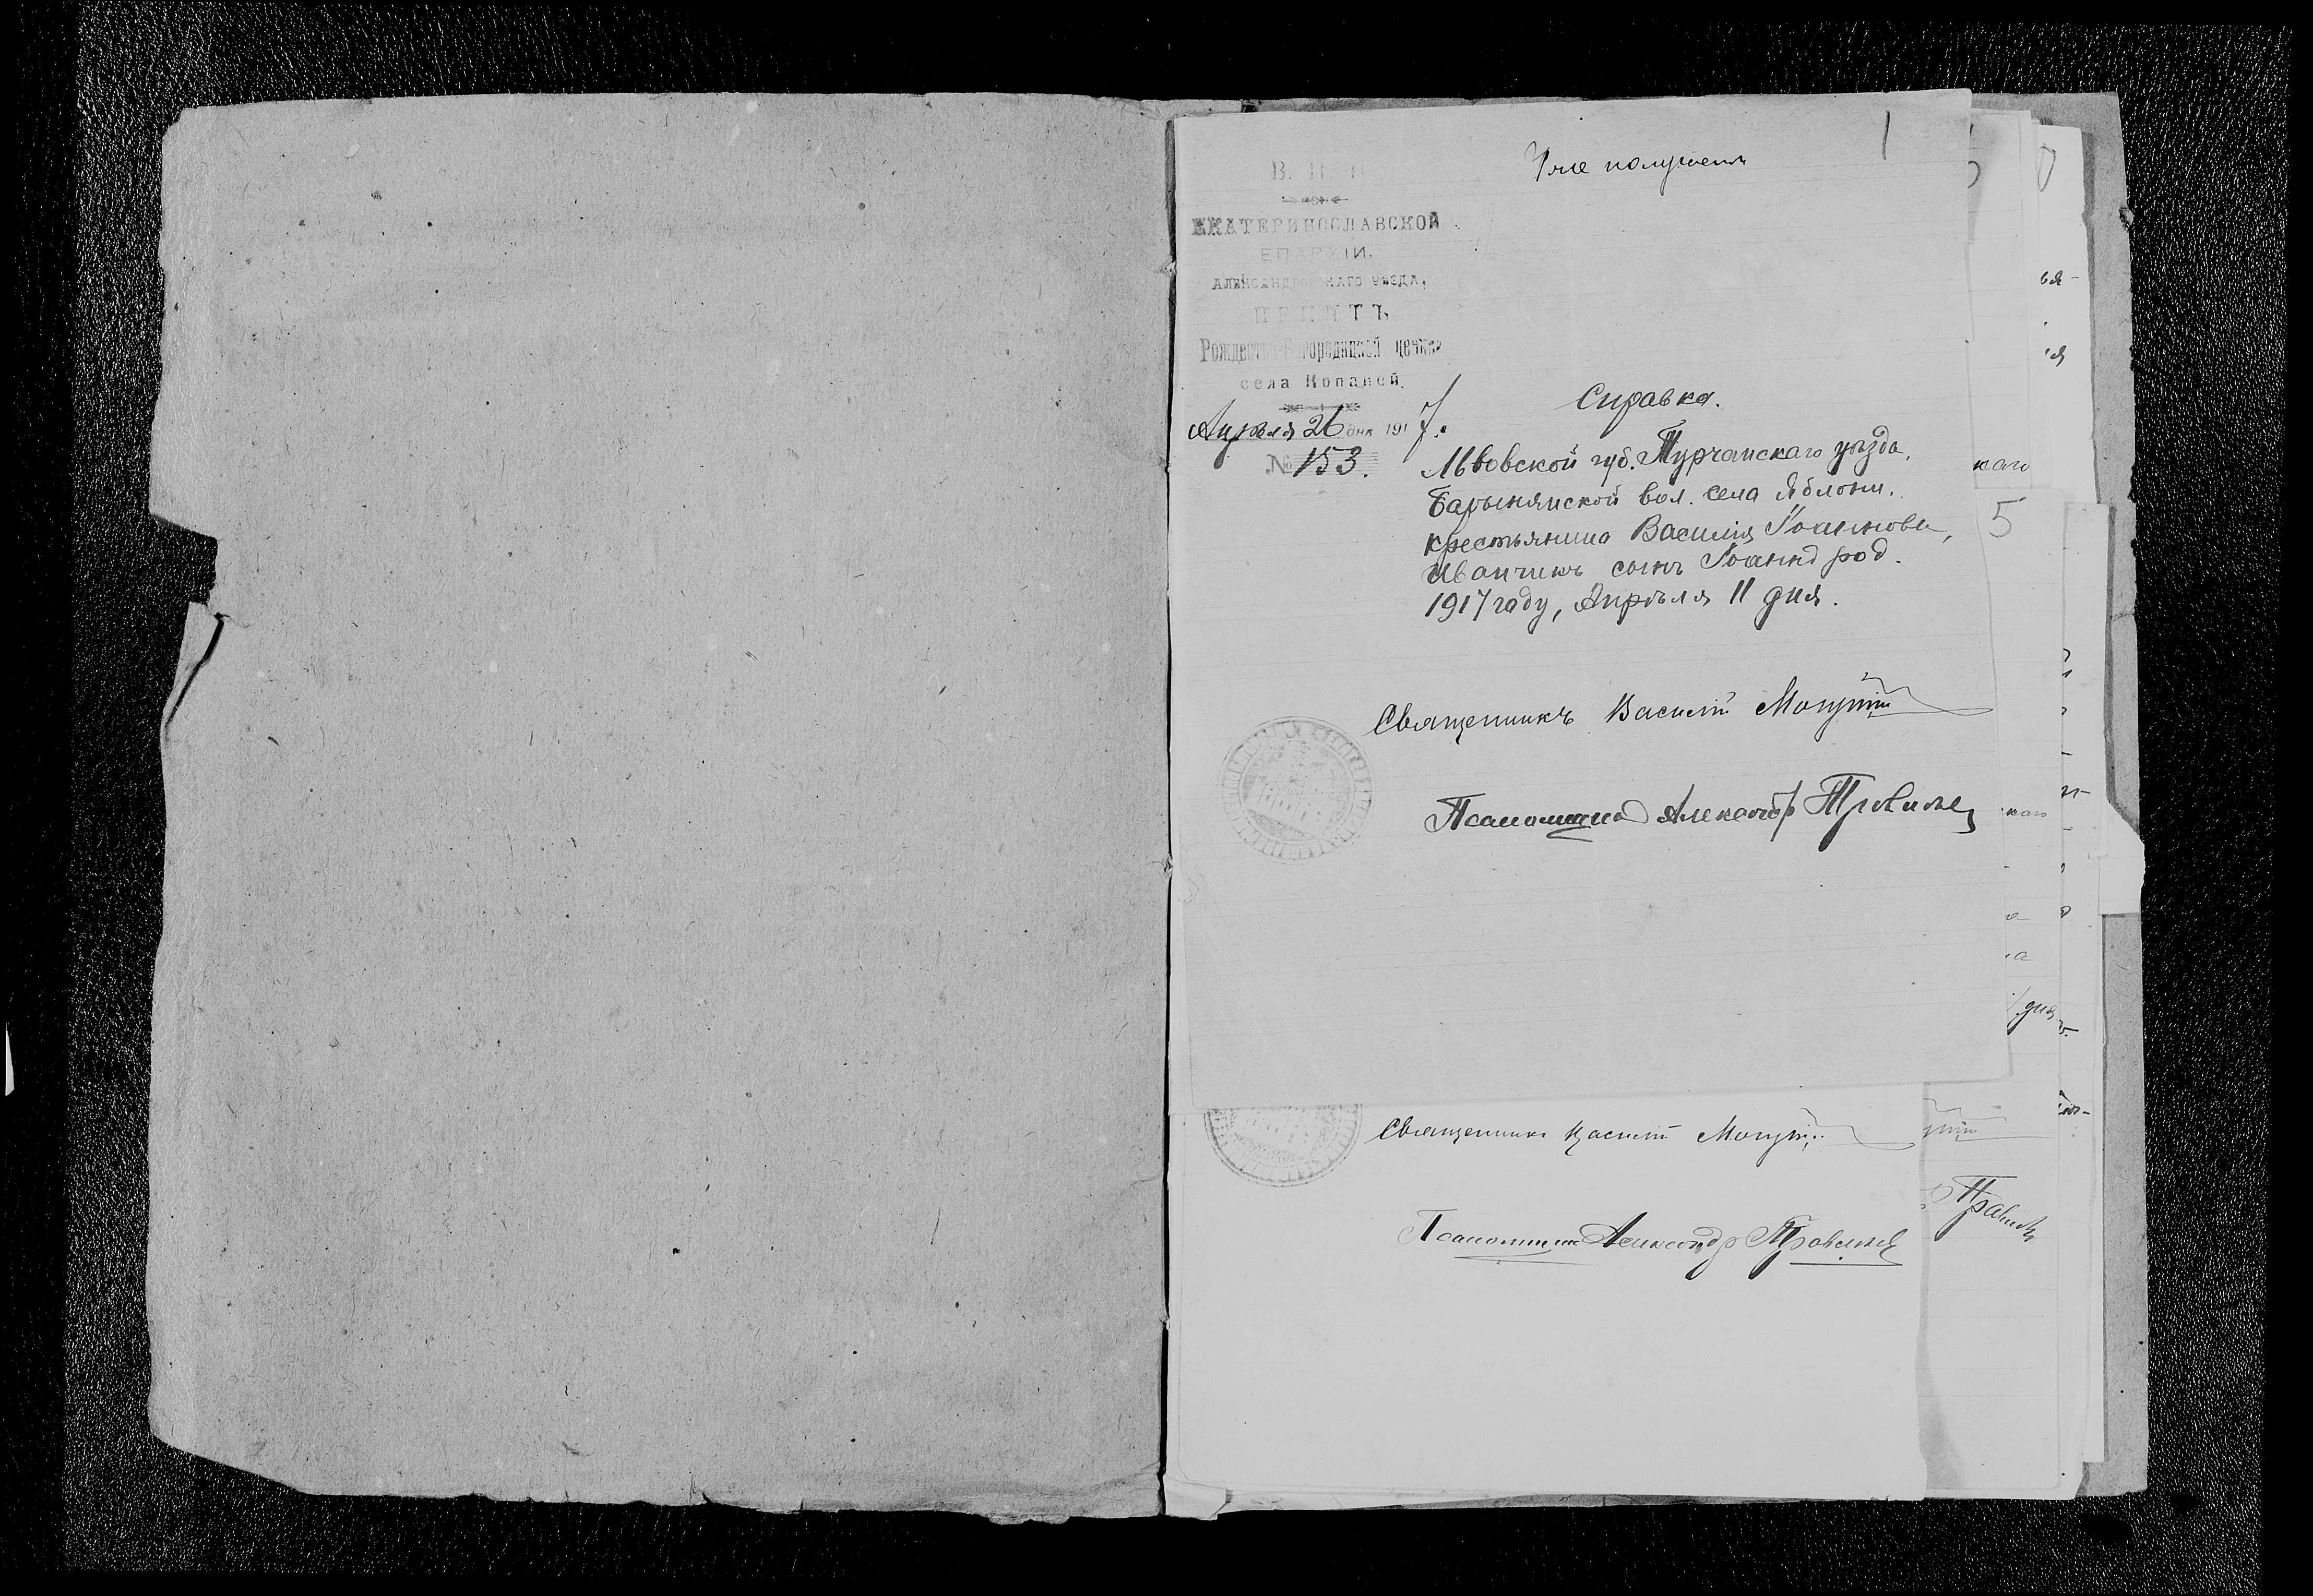 1
В. П. И.
ЕКАТЕРИНОСЛАВСКОЙ
ЕПАРХІИ.
АЛЕКСАНДРОВСКАГО УѢЗДА,
ПРИЧТЪ
Рождество-Богородицкой церкви
села Копаней.
Апрѣля 26 дня 1917 г.
№ 153.
Справка.
Львовской губ. Турчанскаго уѣзда,
Барынянской вол. села Яблони.
крестьянина Василія Іоаннова
Иванчикъ сынъ Іоаннъ род.
1917 году, Апрѣля 11 дня.
Священникъ Василій
Псаломщикъ Александръ
каго
5
каго
дня
Священникъ Василій
Псаломщикъ Александръ